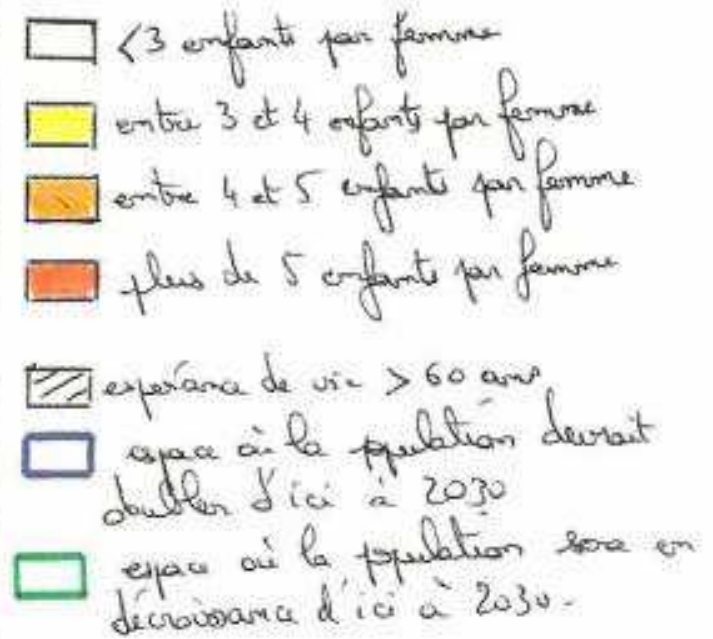 <3 enfants par femme
entre 3 et 4 enfants par femme
entre 4 et 5 enfants par femme
plus de 5 enfants par femme
espérance de vie > 60 ans
espace où la population devrait
doubler d'ici à 2030
espace où la population sera en
décroissance d'ici à 2030.